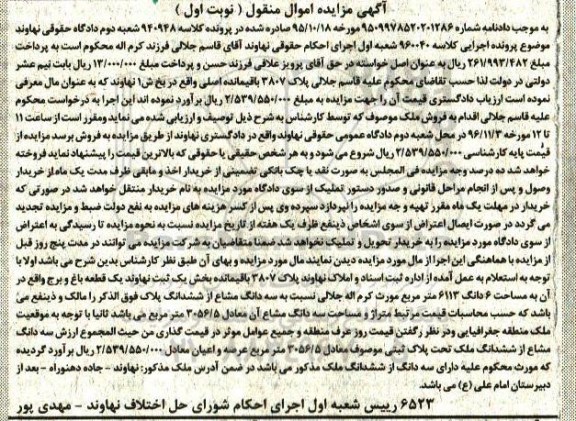 آگهی مزایده اموال منقول ( نوبت اول )
به موجب دادنامه شماره ۹۵۰۹۹۷۸۵۲۰۲۰۱۲۸۶ مورخه ۹۵/۱۰/۱۸ صادره شده در پرونده کلاسه ۹۴۰۹۴۸ شعبه دوم دادگاه حقوقی نهاوند
موضوع پرونده اجرایی کلاسه ۹۶۰۰۴۰ شعبه اول اجرای احکام حقوقی نهاوند آقای قاسم جلالی فرزند کرم اله محکوم است به پرداخت
مبلغ ۲۶۱/۹۹۳/۴۸۲ ریال به عنوان اصل خواسته در حق آقای پرویز علاقی فرزند حسن و پرداخت مبلغ ۱۳/۰۰۰/۰۰۰ ریال بابت نیم عشر
دولتی در دولت لذا حسب تقاضای محکوم علیه قاسم جلالی پلاک ۳۸۰۷ باقیمانده اصلی واقع در بخ ش۱ نهاوند که به عنوان مال معرفی
نموده است ارزیاب دادگستری قیمت آن را جهت مزایده به مبلغ ۲/۵۳۹/۵۵۰/۰۰۰ ریال برآورد نموده اند این اجرا به درخواست محکوم
علیه قاسم جلالی اقدام به فروش ملک موصوف که توسط کارشناس به شرح ذیل توصیف و ارزیابی شده می نماید ومقرر است از ساعت ۱۱
تا ۱۲ مورخه ۹۶/۱۱/۳ در محل شعبه دوم دادگاه عمومی حقوقی نهاوند واقع در دادگستری نهاوند از طریق مزایده به فروش برسد مزایده از
قیمت پایه کارشناسی ۲/۵۳۹/۵۵۰/۰۰۰ ریال شروع می شود و به هر شخص حقیقی یا حقوقی که بالاترین قیمت را پیشنهاد نماید فروخته
خواهد شد ده درصد وجه مزایده فی المجلس به صورت نقد یا چک بانکی تضمینی از خریدار اخذ و مابقی ظرف مدت یک ماه از خریدار
وصول و پس از انجام مراحل قانونی و صدور دستور تملیک از سوی دادگاه مورد مزایده به نام خریدار منتقل خواهد شد در صورتی که
خریدار در مهلت یک ماه مقرر تهیه و جه مزایده را نپردازد سپرده وی پس از کسر هزینه های مزایده به نفع دولت ضبط و مزایده تجدید
می گردد در صورت ایصال اعتراض از سوی اشخاص ذینفع ظرف یک هفته از تاریخ مزایده نسبت به نحوه مزایده تا رسیدگی به اعتراض
از سوی دادگاه مورد مزایده را به خریدار تحویل و تملیک نخواهد شدضمنا متقاضیان به شرکت مزایده می توانند در مدت پنج روز قبل
از مزایده با هماهنگی این اجرا از مال مورد مزایده دیدن نمایند مال مورد مزایده و بهای آن طبق نظر کارشناس بدین شرح می باشد اولا با
توجه به استعلام به عمل آمده از اداره ثبت اسناد و املاک نهاوند پلاک ۳۸۰۷ باقیمانده بخش یک ثبت نهاوند یک قطعه باغ و برج واقع در
آن به مساحت ۶ دانگ ۶۱۱۳ متر مربع مورث کرم اله جلالی نسبت به سه دانگ مشاع از ششدانگ پلاک فوق الذکر را مالک و ذینفع می
باشد که حسب محاسبات قیمت مرتبط متراژ و مساحت سه دانگ مشاع آن معادل ۳۰۵۶/۵ متر مربع می باشد ثانیا با توجه به موقعیت
ملک منطقه جغرافیایی ودر نظر رگفتن قیمت روز عرف منطقه و جمیع عوامل موثر در قیمت گذاری من حیث المجموع ارزش سه دانگ
مشاع از ششدانگ ملک تحت پلاک ثبتی موصوف معادل ۳۰۵۶/۵ متر مربع عرصه و اعیان معادل ۲/۵۳۹/۵۵۰/۰۰۰ ریال برآورد گردیده
که مورث محکوم علیه دارای سه دانگ از ششدانگ ملک مذکور می باشد در ضمن آدرس ملک مذکور: نهاوند – جاده دهنوراه – بعد از
دبیرستان امام علی (ع) می باشد.
۶۵۲۳ رییس شعبه اول اجرای احکام شورای حل اختلاف نهاوند – مهدی پور